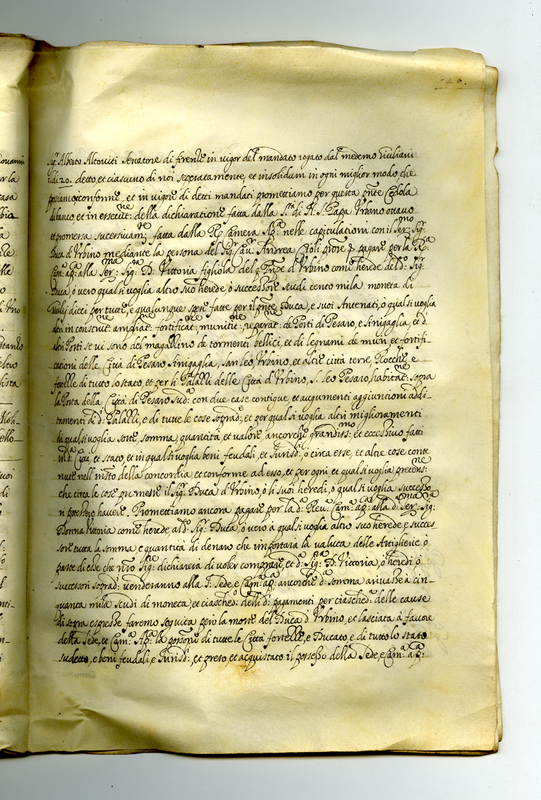 Sig.r Alberto Altoviti Senatore di firenze in vigor del mandato rogato dal medemo Giuliani
li di 20. detto et ciascuno di noi separatamente, et insolidum in ogni miglior modo che
possiamo conforme, et in vigore di detti mandati promettiamo per questa pñte Cedola
di banco, et in della dichiaratione fatta dalla S.tà di N. S. Papa Urbano ottavo
et promessa fatta dalla R. Camera Ap. nelle capitulationi con il Ser.mo Sig.
Duca d'Urbino mediante la persona del Sig. Andrea pagare per la R.
Cam. ap. alla Ser. Sig. D. Vittoria figliola del Principe d'Urbino come herede del d. Sig.
Duca, ò vero qual si voglia altro suo herede, ò successore Scudi cento mila moneta di
Giulij dieci per tutte, e qualunque spese fatte per il Duca, e suoi Antenati, o qual si voglia
altri in construire ampliar, fortificar, munitie, reparat. de Porti di Pesaro, e Sinigaglia, et d
altri Porti se vi sono del magazzino de tormenti bellici, et di legnami de fortifi-
cationi delle Città di Pesaro Sinigaglia, san leo Urbino, et altre città terre, Rocche, e
fortezze di tutto lo stato, et per li Palazzi delle Città d'Urbino, S. leo Pesaro habitat. sopra
la Porta della Città di Pesaro Sud. con due case contigue et augumenti aggiuntioni addi-
tamenti di d. Palazzi, e di tutte le cose soprad. et per qual si voglia altri miglioramenti
di qual si voglia sorte, somma, quantità et valore ancorche grandiss.mo et eccessivo fatti
in d. et stato, et in qual si voglia beni feudali, et Jurisd. ò circa esse, et altre cose conte-
nute nell' della concordia et conforme ad esso, et per ogni et qual si voglia pretens.ne
che circa le cose premesse il Sig. Duca d'Urbino, ò li suoi heredi, ò qual si voglia successo-
ri potesse havere. Promettiamo ancora pagare per la d. Rev. Cam. ap. alla d. Ser. Sig.
Donna Vittoria come herede al d. Sig. Duca ò vero a qual si voglia altro suo herede, e succes
sore tutta la somma, e quantità di denaro che importarà la valuta delle Artiglierie, ò
parte di esse che Sig. dichiararà di voler comprare, et d. Sig. D. Vittoria, ò heredi ò
successori soprad. venderanno alla S. Sede, e Cam. ap. ancorche d. somma arrivasse a cin-
quanta mila Scudi di moneta, et ciasched. dell d. pagamenti per ciasched. delle cause
di sopra espresse faremo seguita però la morte del Duca d'Urbino, et lasciata à favore
della Sede, et Cam. Ap. la possess. di tutte le Città fortezze, e Ducato, e di tutto lo stato
sudetto, e beni feudali, e Jurisd., et preso et acquistato il possesso della Sede, e Cam. ap.